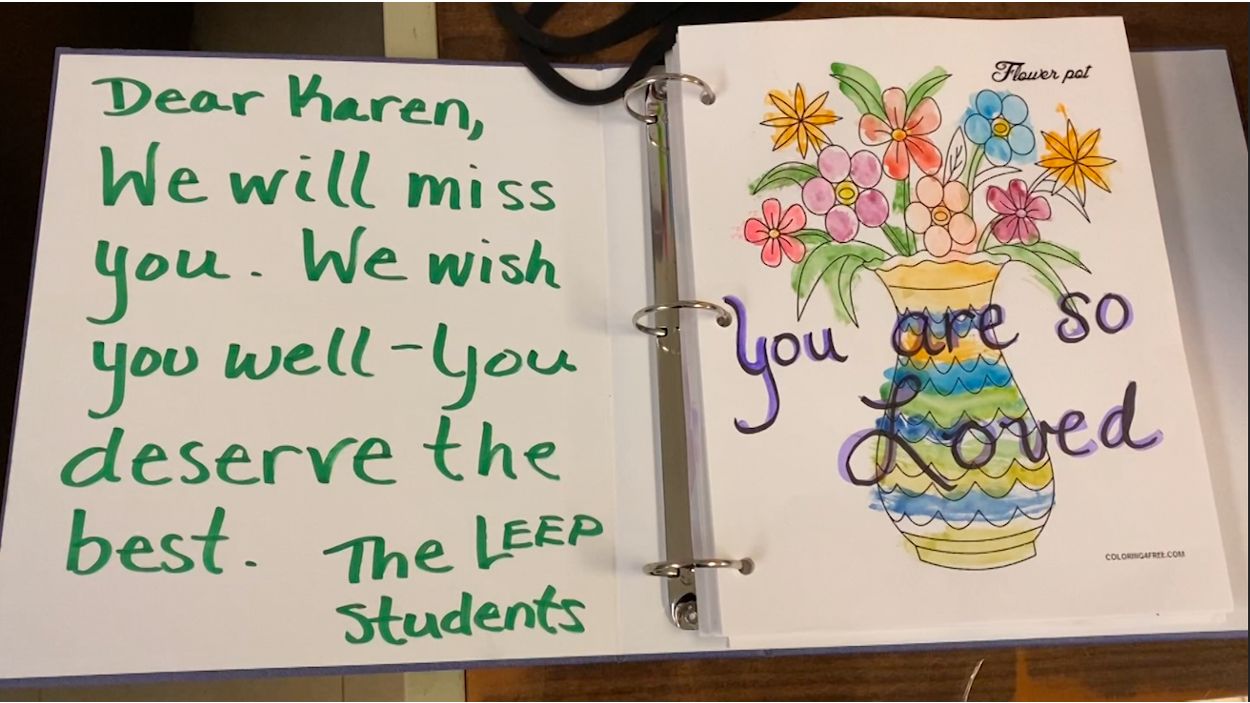 Dear Karen,
We will miss
you. We wish
you well - You
deserve the
best.
The LEEP
Students
Flower pot
You are so
Loved
COLORING4FREE.COM